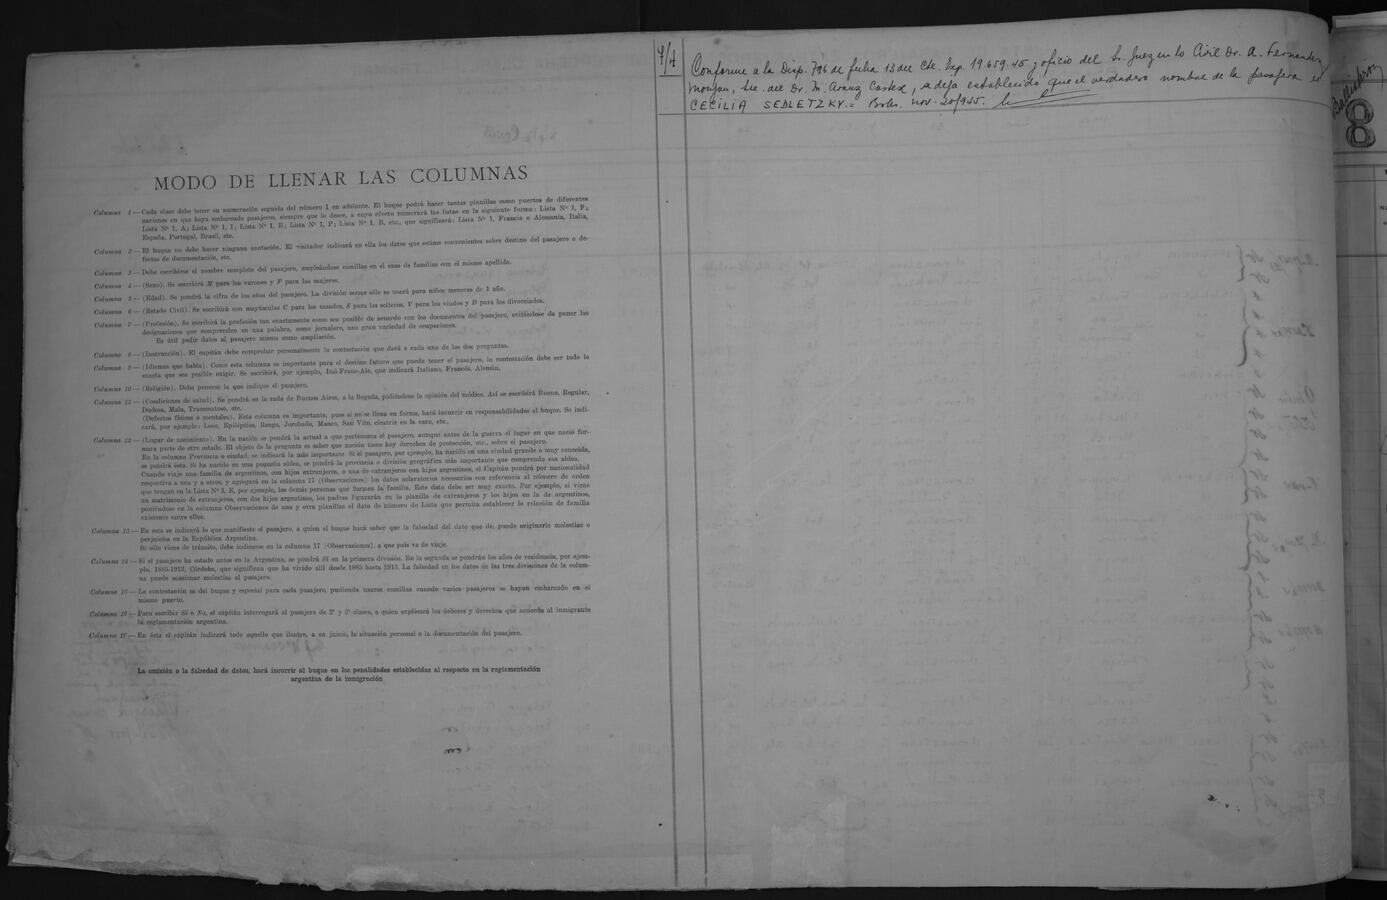 MODO DE LLENAR LAS COLUMNAS
Columna 1 — Cada clase debe tener su numeración seguida del número 1 en adelante. El buque podrá hacer tantas planillas como puertos de diferentes
naciones en que haya embarcado pasajeros, siempre que lo desee, a cuyo efecto numerará las listas en la siguiente forma: Lista Nº 1, F;
Lista Nº 1, A; Lista Nº 1, I; Lista Nº 1, E; Lista Nº 1, P; Lista Nº 1, B, etc., que significará: Lista Nº 1, Francia o Alemania, Italia,
España, Portugal, Brasil, etc.
Columna 2 — El buque no debe hacer ninguna anotación. El visitador indicará en ella los datos que estime convenientes sobre destino del pasajero o de-
fectos de documentación, etc.
Columna 3 — Debe escribirse el nombre completo del pasajero, empleándose comillas en el caso de familias con el mismo apellido.
Columna 4 — (Sexo). Se escribirá M para los varones y F para las mujeres.
Columna 5 — (Edad). Se pondrá la cifra de los años del pasajero. La división meses sólo se usará para niños menores de 1 año.
Columna 6 — (Estado Civil). Se escribirá con mayúsculas C para los casados, S para los solteros, V para los viudos y D para los divorciados.
Columna 7 — (Profesión). Se escribirá la profesión tan exactamente como sea posible de acuerdo con los documentos del pasajero, evitándose de poner las
designaciones que comprenden en una palabra, como jornalero, una gran variedad de ocupaciones.
Es útil pedir datos al pasajero mismo como ampliación.
Columna 8 — (Instrucción). El capitán debe comprobar personalmente la contestación que dará a cada una de las dos preguntas.
Columna 9 — (Idiomas que habla). Como esta columna es importante para el destino futuro que pueda tener el pasajero, la contestación debe ser todo lo
exacta que sea posible exigir. Se escribirá, por ejemplo, Ital-Franc-Ale, que indicará Italiano, Francés, Alemán.
Columna 10 — (Religión). Debe ponerse la que indique el pasajero.
Columna 11 — (Condiciones de salud). Se pondrá en la rada de Buenos Aires, a la llegada, pidiéndose la opinión del médico. Así se escribirá Buena, Regular,
Dudosa, Mala, Tracomatoso, etc.
(Defectos físicos o mentales). Esta columna es importante, pues si no se llena en forma, hará incurrir en responsabilidades al buque. Se indi-
cará, por ejemplo: Loco, Epiléptico, Rengo, Jorobado, Manco, San Vito, cicatriz en la cara, etc.
Columna 12 — (Lugar de nacimiento). En la nación se pondrá la actual a que pertenezca el pasajero, aunque antes de la guerra el lugar en que nació for-
mara parte de otro estado. El objeto de la pregunta es saber que nación tiene hoy derechos de protección, etc., sobre el pasajero.
En la columna Provincia o ciudad, se indicará la más importante Si el pasajero, por ejemplo, ha nacido en una ciudad grande o muy conocida,
se pondrá ésta. Si ha nacido en una pequeña aldea, se pondrá la provincia o división geográfica más importante que comprenda esa aldea.
Cuando viaje una familia de argentinos, con hijos extranjeros, o una de extranjeros con hijos argentinos, el Capitán pondrá por nacionalidad
respectiva a una y a otros, y agregará en la columna 17 (Observaciones) los datos aclaratorios necesarios con referencia al número de orden
que tengan en la Lista Nº 3, E, por ejemplo, las demás personas que formen la familia. Este dato debe ser muy exacto. Por ejemplo, si viene
un matrimonio de extranjeros, con dos hijos argentinos, los padres figurarán en la planilla de extranjeros y los hijos en la de argentinos,
poniéndose en la columna Observaciones de una y otra planillas el dato de número de Lista que permita establecer la relación de familia
existente entre ellos.
Columna 13 — En ésta se indicará lo que manifieste el pasajero, a quien el buque hará saber que la falsedad del dato que dé, puede originarle molestias o
perjuicios en la República Argentina.
Si sólo viene de tránsito, debe indicarse en la columna 17 (Observaciones), a que país va de viaje.
Columna 14 — Si el pasajero ha estado antes en la Argentina, se pondrá Sí en la primera división. En la segunda se pondrán los años de residencia, por ejem-
plo, 1885-1913, Córdoba, que significan que ha vivido allí desde 1885 hasta 1913. La falsedad en los datos de las tres divisiones de la colum-
na puede ocasionar molestias al pasajero.
Columna 15 — La contestación es del buque y especial para cada pasajero, pudiendo usarse comillas cuando varios pasajeros se hayan embarcado en el
mismo puerto.
Columna 16 — Para escribir Sí o No, el capitán interrogará al pasajero de 2ª y 3ª clases, a quien explicará los deberes y derechos que acuerda al inmigrante
la reglamentación argentina.
Columna 17 — En ésta el capitán indicará todo aquello que ilustre, a su juicio, la situación personal o la documentación del pasajero.
La omisión o la falsedad de datos, hará incurrir al buque en las penalidades establecidas al respecto en la reglamentación
argentina de la inmigración
Conforme a la Disp. 796 de fecha 13 del cte. Exp. 19.659-45 y oficio del Sr. Juez en lo Civil Dr. A. Fernandez
Monjan, Sec. del Dr. M. Arauz Castex, se deja establecido que el verdadero nombre de la pasajera es
CECILIA SEDLETZKY.= Bs As. nov. 20/945.
8